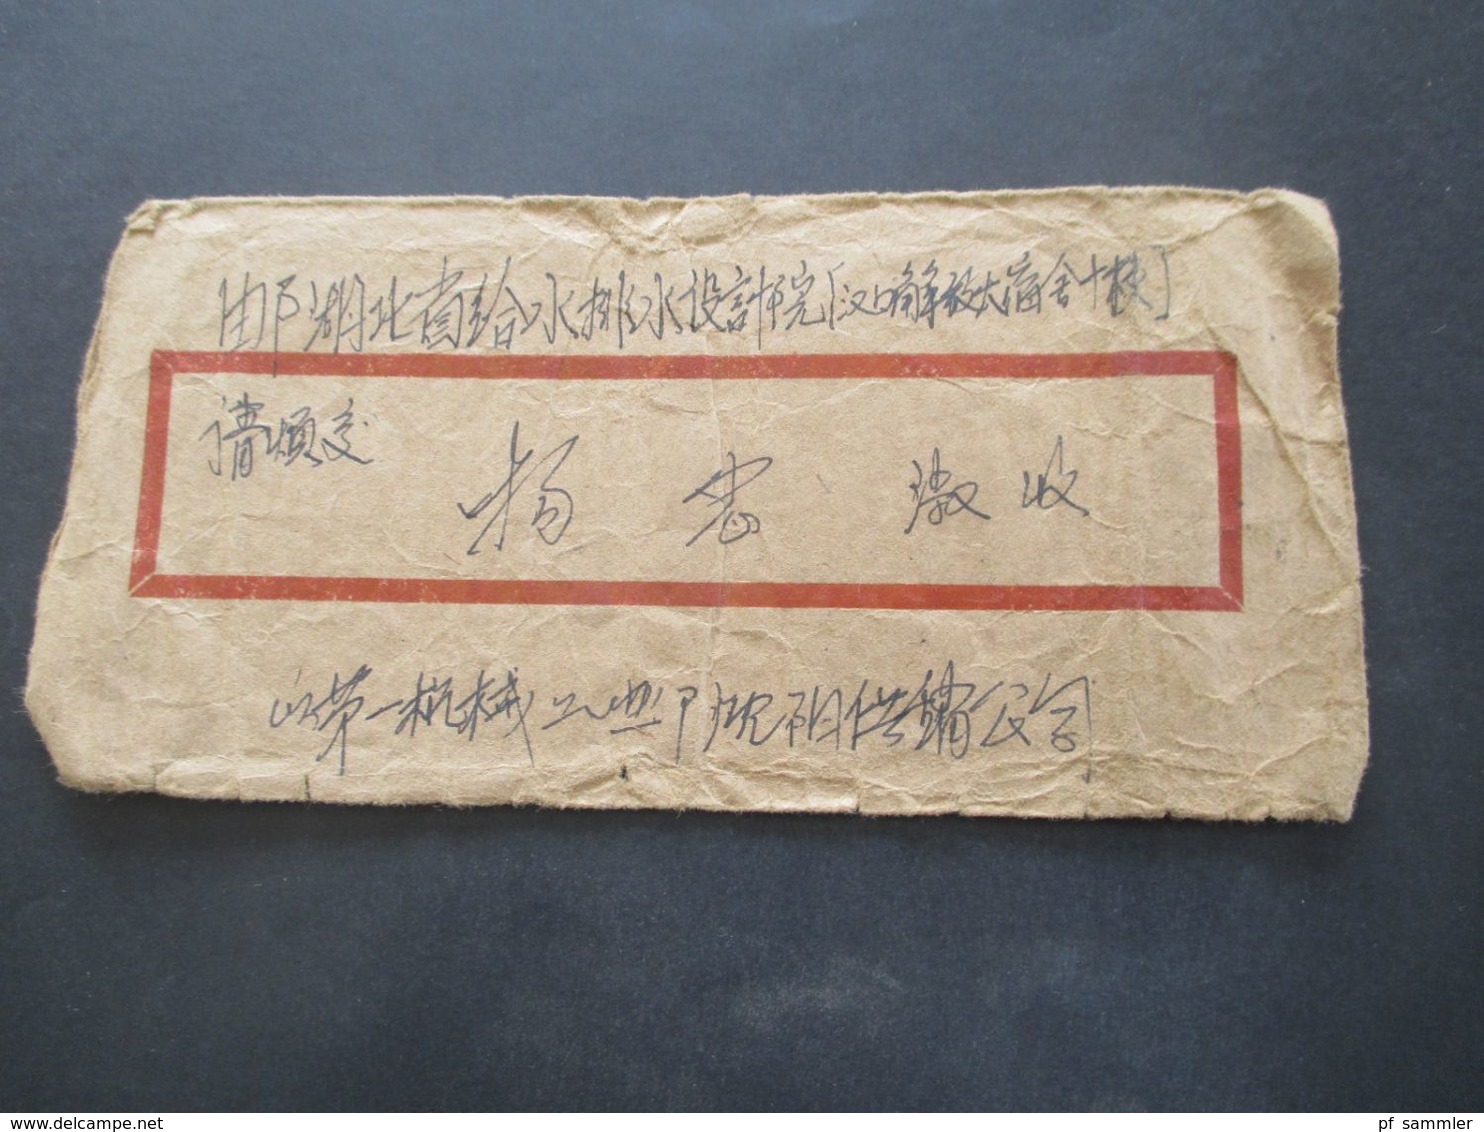 邮湖北省给水排水设計院「汉口解放大宿舍十栋」
请烦交
杨忠 收
第一机械工业部沈阳供销公司
delcampe.net
pf_sammler